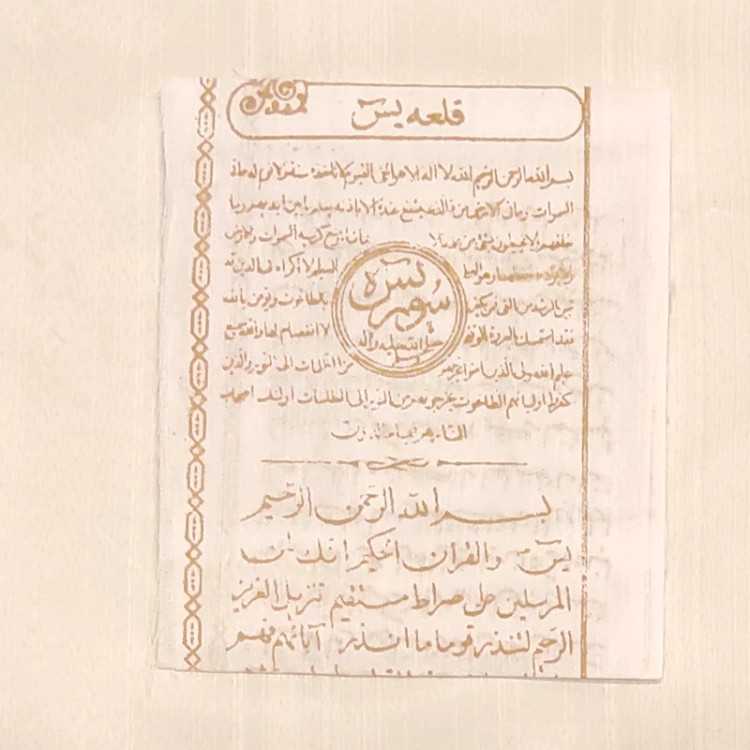 قلعه يس
بسم الله الرحمن الرحيم الله لا اله الا هو الحى القيوم لا تاخذه سنة ولا نوم له ما فى
السموات وما فى الارض من ذا الذى يشفع عنده الا باذنه يعلم ما بين ايديهم وما
خلفهم ولا يحيطون بشئ من علمه الا بما شاء وسع كرسيه السموات والارض
العظيم لا اكراه فى الدين قد
سورة يس
تبين الرشد من الغى فمن يكفر بالطاغوت ويومن بالله
فقد استمسك بالعروة الوثقى لا انفصام لها والله سميع
صلى الله عليه وآله وسلم
عليم الله ولى الذين امنوا يخرجهم من الظلمات الى النور والذين
كفروا اولياءهم الطاغوت يخرجونهم من النور الى الظلمات اولئك اصحاب
النار هم فيها خالدون
بسم الله الرحمن الرحيم
يس والقران الحكيم انك لمن
المرسلين على صراط مستقيم تنزيل العزيز
الرحيم لتنذر قوما ما انذر آبائهم فهم